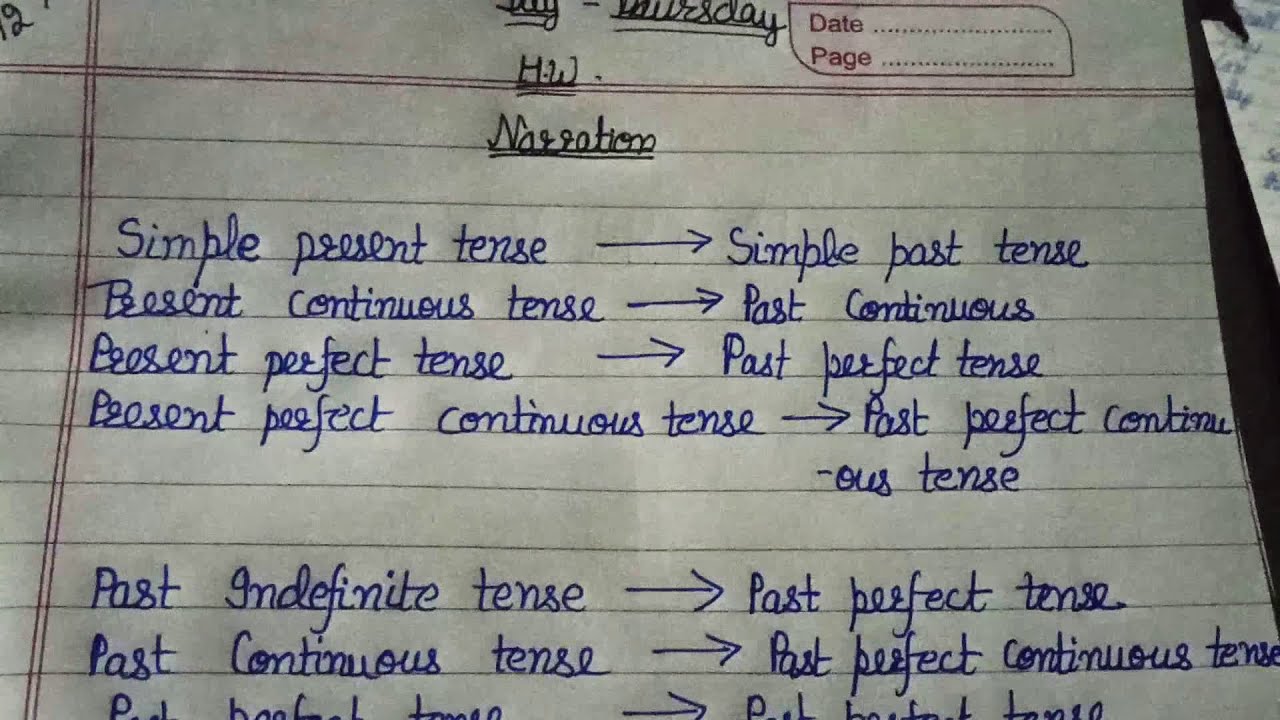 12
Day - Thursday
Date
Page
H.W.
Narration
Simple present tense → Simple past tense
Present continuous tense → Past Continuous
Present perfect tense → Past perfect tense
Present perfect continuous tense → Past perfect continu
-ous tense
Past Indefinite tense → Past perfect tense.
Past Continuous tense → Past perfect continuous tense
Past perfect tense → Past perfect tense